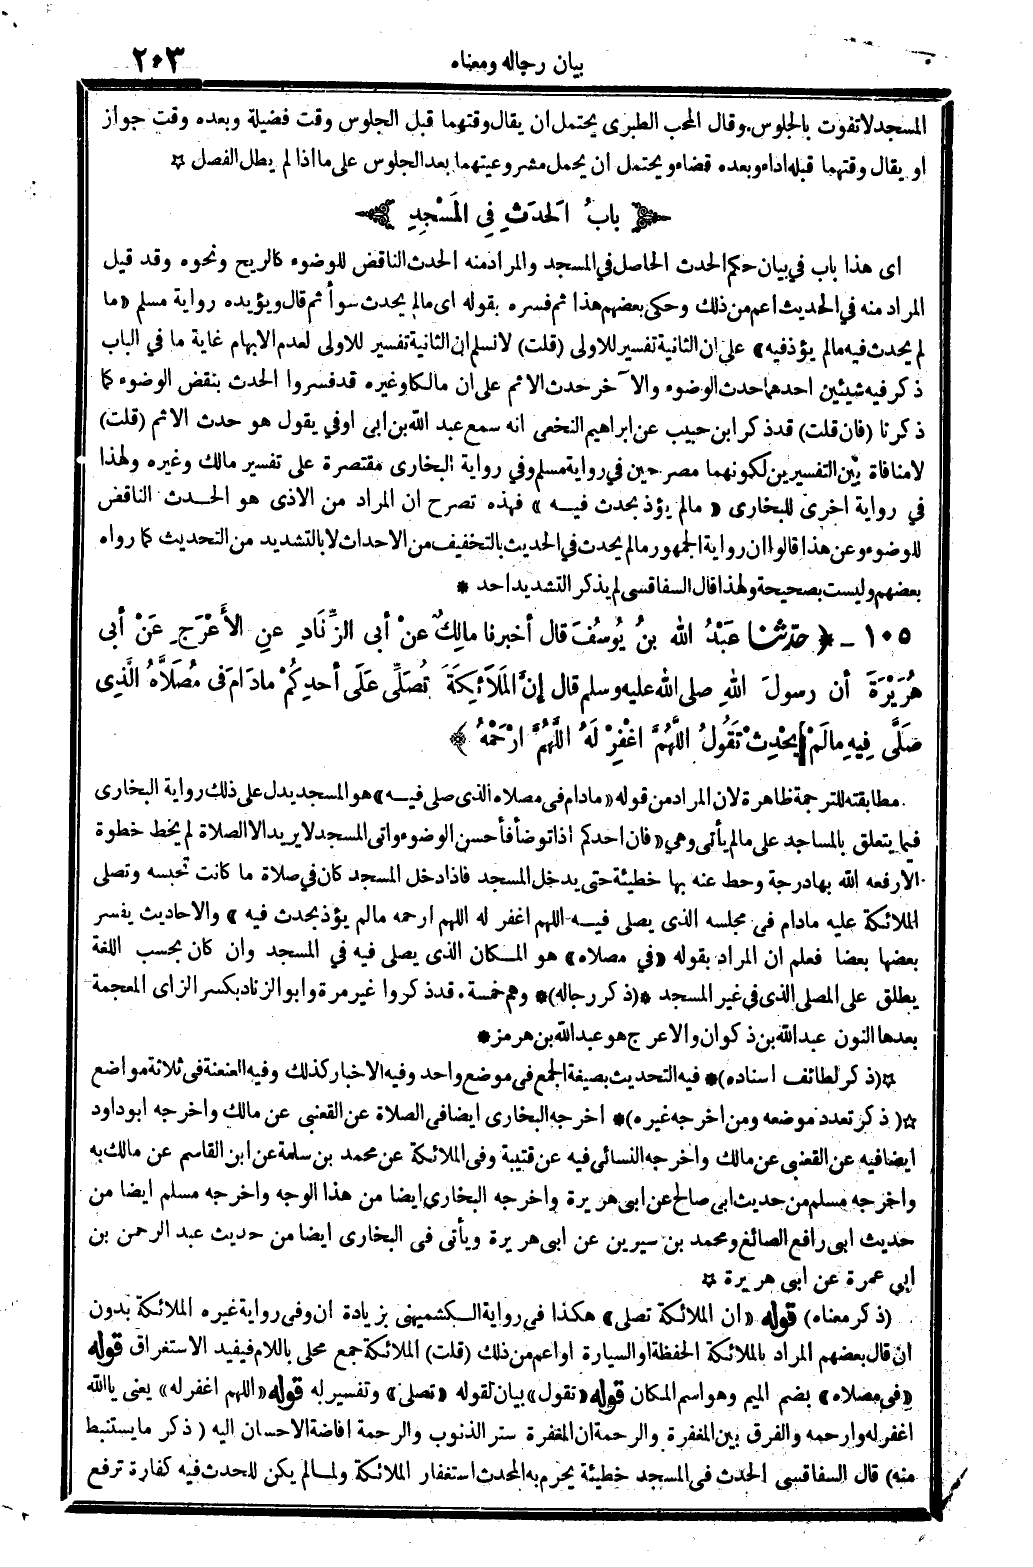 بيان رجاله ومعناه
٢٠٣
المسجد لا تفوت بالجلوس. وقال المحب الطبرى يحتمل ان يقال وقتهما قبل الجلوس وقت فضيلة وبعده وقت جواز
او يقال وقتهما قبله اداء وبعده قضاء ويحتمل ان يحمل مشروعيتهما بعد الجلوس على ما اذا لم يطل الفصل ☆
باب الحدث فى المسجد
اى هذا باب في بيان حكم الحدث الحاصل في المسجد والمراد منه الحدث الناقض للوضوء كالريح ونحوه وقد قيل
المراد منه في الحديث اعم من ذلك وحكى بعضهم هذا ثم فسره بقوله اى مالم يحدث سوأ ثم قال ويؤيده رواية مسلم «ما
لم يحدث فيه مالم يؤذ فيه» على ان الثانية تفسير للاولى (قلت) لا نسلم ان الثانية تفسير للاولى لعدم الابهام غاية ما في الباب
ذكر فيه شيئين احدهما حدث الوضوء والآخر حدث الاثم على ان مالكا وغيره قد فسروا الحدث بنقض الوضوء كما
ذكرنا (فان قلت) قد ذكر ابن حبيب عن ابراهيم النخعى انه سمع عبد الله بن ابى اوفي يقول هو حدث الاثم (قلت)
لا منافاة بين التفسيرين لكونهما مصرحين في رواية مسلم وفي رواية البخارى مقتصرة على تفسير مالك وغيره ولهذا
في رواية اخرى للبخارى «مالم يؤذ بحدث فيه» فهذه تصرح ان المراد من الاذى هو الحدث الناقض
للوضوء وعن هذا قالوا ان رواية الجمهور مالم يحدث في الحديث بالتخفيف من الاحداث لا بالتشديد من التحديث كما رواه
بعضهم وليست بصحيحة ولهذا قال السفاقسى لم يذكر التشديد احد *
١٠٥ - ﴿ حدّثنا عَبْدُ الله بنُ يُوسُفَ قال أخبرنا مالِكٌ عنْ أبى الزِّنَادِ عنِ الأَعْرَجِ عَنْ أبى
هُرَيْرَةَ أن رسولَ اللهِ صلى الله عليه وسلم قال إنَّ المَلاَئِكَةَ تُصَلِّى عَلَى أحدِكُمْ مادَامَ فى مُصَلاَّهُ الَّذِى
صَلَّى فِيهِ مالَمْ يحْدِثْ تَقُولُ اللَّهُمَّ اغْفِرْ لَهُ اللَّهُمَّ ارْحَمْهُ ﴾
مطابقته للترجمة ظاهرة لان المراد من قوله «مادام فى مصلاه الذى صلى فيه» هو المسجد يدل على ذلك رواية البخارى
فيما يتعلق بالمساجد على مالم يأتى وهي «فان احدكم اذا توضأ فأحسن الوضوء واتى المسجد لا يريد الا الصلاة لم يخط خطوة
الا رفعه الله بها درجة وحط عنه بها خطيئة حتى يدخل المسجد فاذا دخل المسجد كان في صلاة ما كانت تحبسه وتصلى
الملائكة عليه مادام فى مجلسه الذى يصلى فيه اللهم اغفر له اللهم ارحمه مالم يؤذ بحدث فيه» والاحاديث يفسر
بعضها بعضا فعلم ان المراد بقوله «في مصلاه» هو المكان الذى يصلى فيه في المسجد وان كان بحسب اللغة
يطلق على المصلى الذى في غير المسجد *(ذكر رجاله)* وهم خمسة. قد ذكروا غير مرة وابو الزناد بكسر الزاى المعجمة
بعدها النون عبد الله بن ذكوان والاعرج هو عبد الله بن هرمز *
☆(ذكر لطائف اسناده)* فيه التحديث بصيغة الجمع فى موضع واحد وفيه الاخبار كذلك وفيه العنعنة فى ثلاثة مواضع
☆(ذكر تعدد موضعه ومن اخرجه غيره)* اخرجه البخارى ايضا فى الصلاة عن القعنبى عن مالك واخرجه ابو داود
ايضا فيه عن القعنبى عن مالك واخرجه النسائى فيه عن قتيبة وفى الملائكة عن محمد بن سلمة عن ابن القاسم عن مالك به
واخرجه مسلم من حديث ابى صالح عن ابى هريرة واخرجه البخارى ايضا من هذا الوجه واخرجه مسلم ايضا من
حديث ابى رافع الصائغ ومحمد بن سيرين عن ابى هريرة ويأتى فى البخارى ايضا من حديث عبد الرحمن بن
ابي عمرة عن ابى هريرة ☆
(ذكر معناه) قوله «ان الملائكة تصلى» هكذا فى رواية الكشميهنى بزيادة ان وفى رواية غيره الملائكة بدون
ان قال بعضهم المراد بالملائكة الحفظة او السيارة او اعم من ذلك (قلت) الملائكة جمع محلى باللام فيفيد الاستغراق قوله
«فى مصلاه» بضم الميم وهو اسم المكان قوله «تقول» بيان لقوله «تصلى» وتفسير له قوله «اللهم اغفر له» يعنى يا الله
اغفر له وارحمه والفرق بين المغفرة والرحمة ان المغفرة ستر الذنوب والرحمة افاضة الاحسان اليه (ذكر ما يستنبط
منه) قال السفاقسى الحدث فى المسجد خطيئة يحرم به المحدث استغفار الملائكة ولما لم يكن للحدث فيه كفارة ترفع